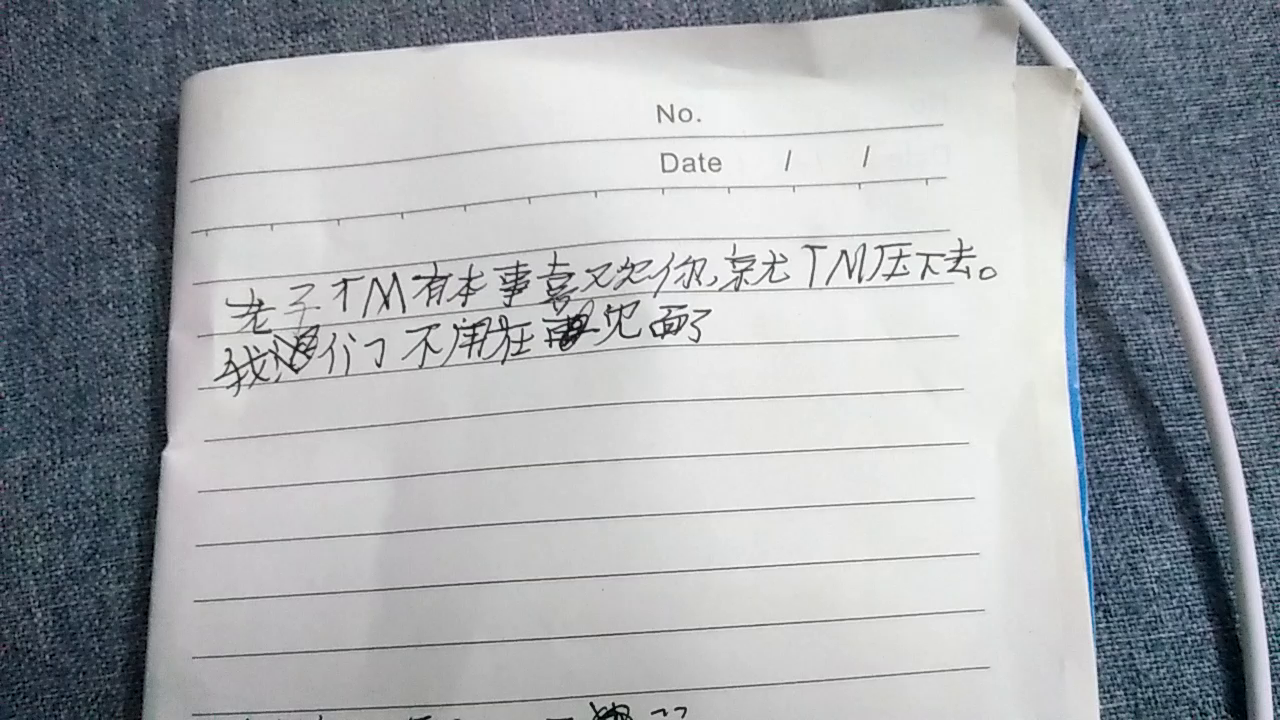 No.
Date / /
老子TM有本事喜欢你,就TM压下去。
我们不用在见面了